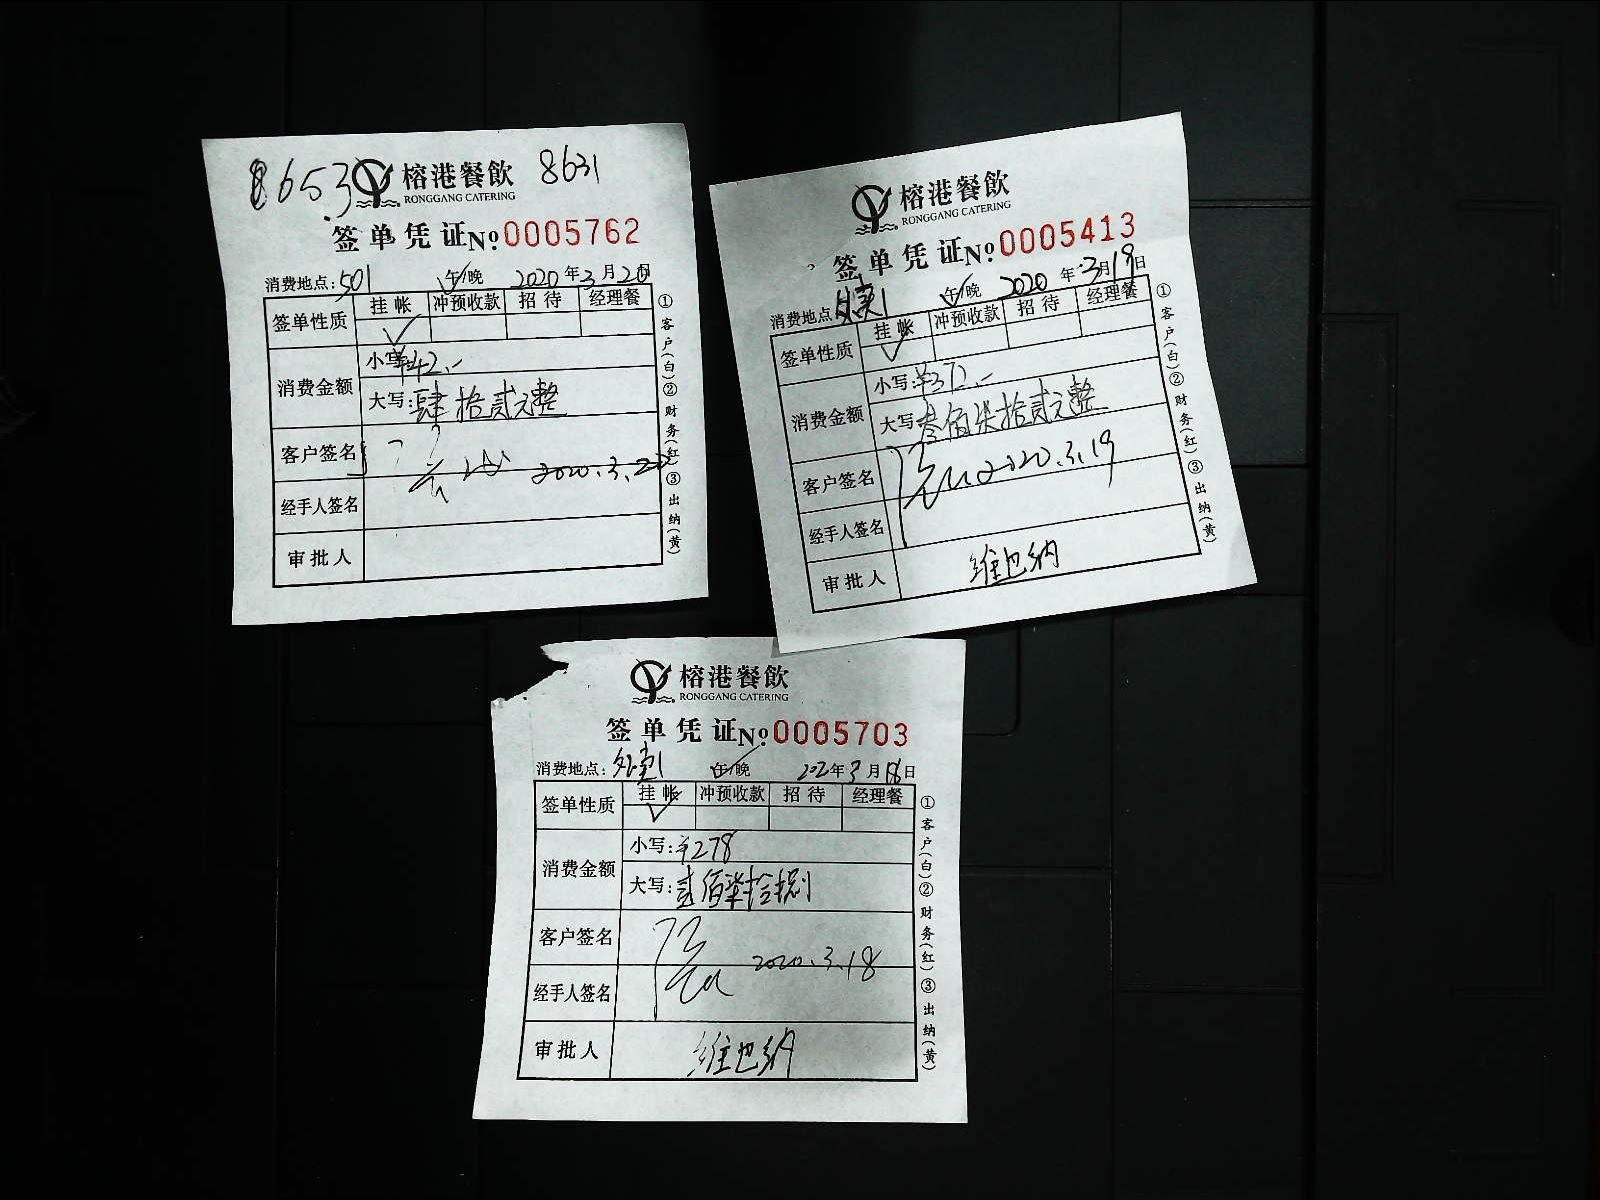 8653 榕港餐飲 8631
RONGGANG CATERING
签单凭证 No 0005762
消费地点:501 午/晚 2020年3月20日
签单性质 挂帐 冲预收款 招待 经理餐
✓
消费金额 小写:¥42.-
大写:肆拾贰元整
客户签名 2020.3.20
经手人签名
审批人
①客户(白)②财务(红)③出纳(黄)
榕港餐飲
RONGGANG CATERING
签单凭证 No 0005413
消费地点: 午/晚 2020年3月19日
签单性质 挂帐 冲预收款 招待 经理餐
✓
消费金额 小写:¥372.-
大写:叁佰柒拾贰元整
客户签名 2020.3.19
经手人签名
审批人 维也纳
①客户(白)②财务(红)③出纳(黄)
榕港餐飲
RONGGANG CATERING
签单凭证 No 0005703
消费地点:外堂1 午/晚 202年3月18日
签单性质 挂帐 冲预收款 招待 经理餐
✓
消费金额 小写:¥278
大写:贰佰柒拾捌
客户签名 2020.3.18
经手人签名
审批人 维也纳
①客户(白)②财务(红)③出纳(黄)